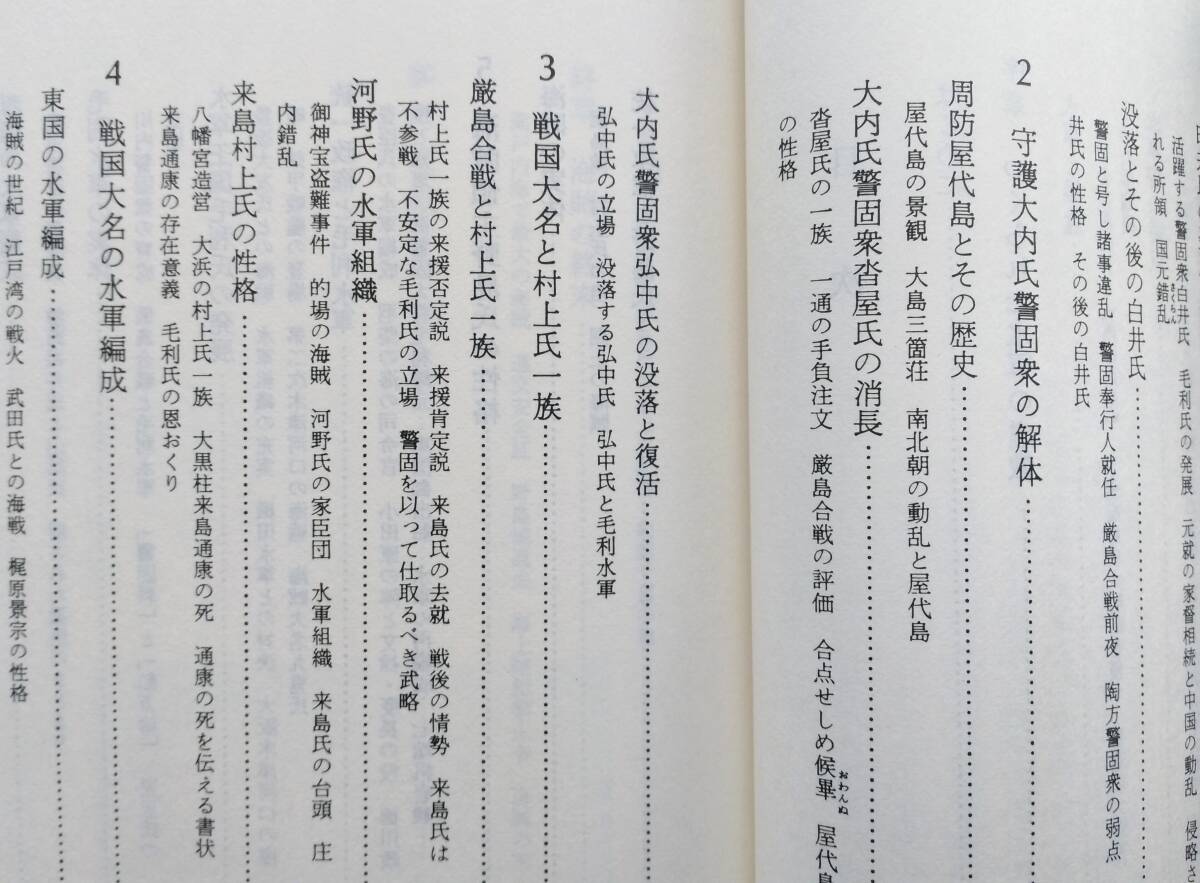 活躍する警固衆白井氏　毛利氏の発展　元就の家督相続と中国の動乱　侵略さ
れる所領　国元錯乱
さくらん
没落とその後の白井氏
警固と号し諸事違乱　警固奉行人就任　厳島合戦前夜　陶方警固衆の弱点
井氏の性格　その後の白井氏
2　守護大内氏警固衆の解体
周防屋代島とその歴史
屋代島の景観　大島三箇荘　南北朝の動乱と屋代島
大内氏警固衆沓屋氏の消長
沓屋氏の一族　一通の手負注文　厳島合戦の評価　合点せしめ候畢　屋代島
おわんぬ
の性格
大内氏警固衆弘中氏の没落と復活
弘中氏の立場　没落する弘中氏　弘中氏と毛利水軍
3　戦国大名と村上氏一族
厳島合戦と村上氏一族
村上氏一族の来援否定説　来援肯定説　来島氏の去就　戦後の情勢　来島氏は
不参戦　不安定な毛利氏の立場　警固を以って仕取るべき武略
河野氏の水軍組織
御神宝盗難事件　的場の海賊　河野氏の家臣団　水軍組織　来島氏の台頭　庄
内錯乱
来島村上氏の性格
八幡宮造営　大浜の村上氏一族　大黒柱来島通康の死　通康の死を伝える書状
来島通康の存在意義　毛利氏の恩おくり
4　戦国大名の水軍編成
東国の水軍編成
海賊の世紀　江戸湾の戦火　武田氏との海戦　梶原景宗の性格